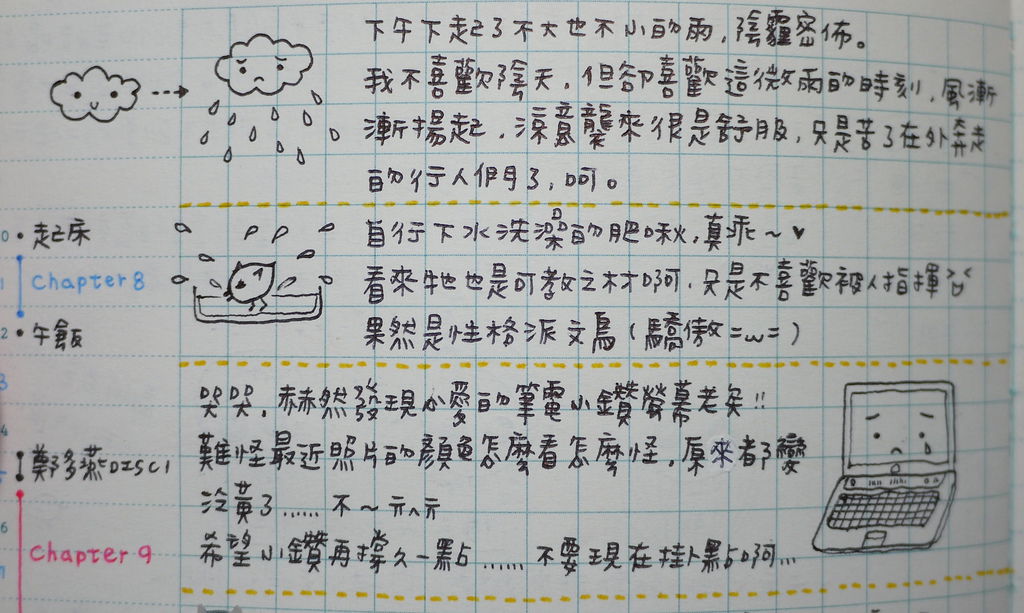 下午下起了不大也不小的雨,陰霾密佈。
我不喜歡陰天,但卻喜歡這微雨的時刻,風漸
漸揚起,涼意襲來很是舒服,只是苦了在外奔走
的行人們了,呵。
自行下水洗澡的肥啾,真乖~♥
看來牠也是可教之材啊,只是不喜歡被人指揮
果然是性格派文鳥(驕傲=ω=)
哭哭,赫然發現心愛的筆電小鑽螢幕老灸!!
難怪最近照片的顏色怎麼看怎麼怪,原來都變
泛黃了…… 不~
希望小鑽再撐久一點…… 不要現在掛點啊…
起床
Chapter 8
午飯
鄭多燕DISC1
Chapter 9